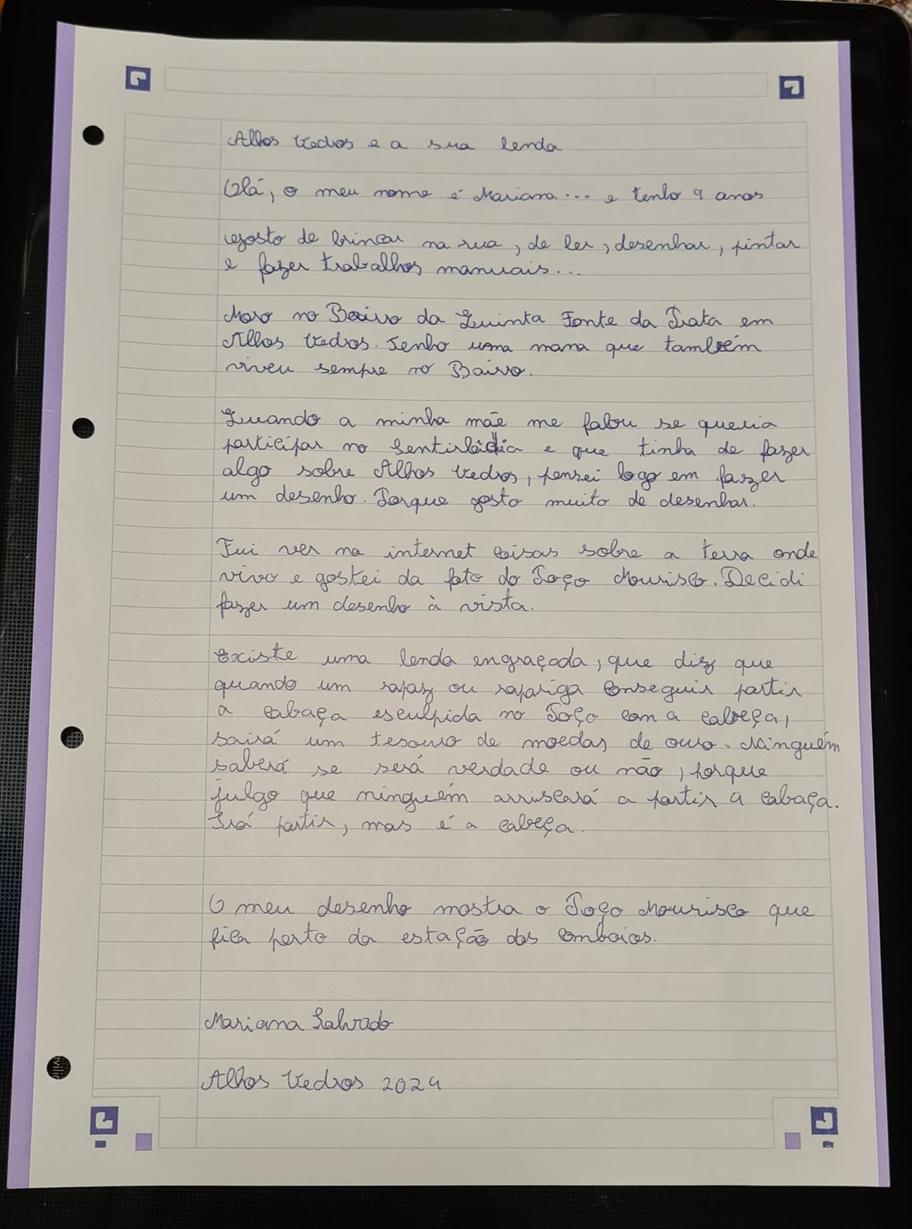 Alhos Vedros e a sua lenda
Olá, o meu nome é Mariana... e tenho 9 anos
Gosto de brincar na rua, de ler, desenhar, pintar
e fazer trabalhos manuais...
Moro no Bairro da Quinta Fonte da Prata em
Alhos Vedros. Tenho uma mana que também
viveu sempre no Bairro.
Quando a minha mãe me falou se queria
participar no e que tinha de fazer
algo sobre Alhos Vedros, pensei logo em fazer
um desenho. Porque gosto muito de desenhar.
Fui ver na internet coisas sobre a terra onde
vivo e gostei da foto do Poço Mourisco. Decidi
fazer um desenho à vista.
Existe uma lenda engraçada, que diz que
quando um rapaz ou rapariga conseguir partir
a cabaça esculpida no Poço com a cabeça,
sairá um tesouro de moedas de ouro. Ninguém
saberá se será verdade ou não, porque
julgo que ninguém arriscará a partir a cabaça.
Irá partir, mas é a cabeça.
O meu desenho mostra o Poço Mourisco que
fica perto da estação dos comboios.
Mariana Salvado
Alhos Vedros 2024